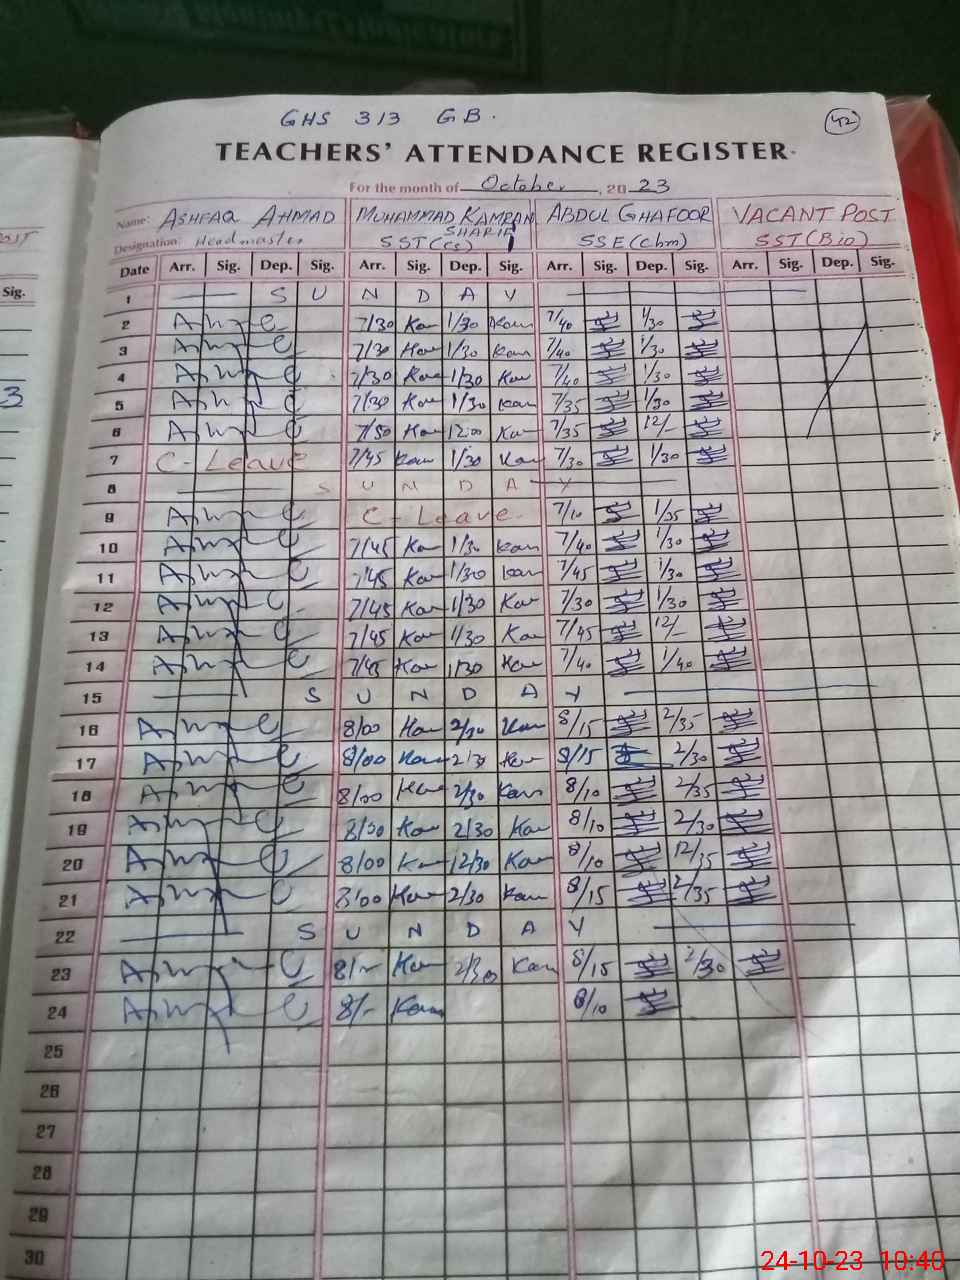 GHS 313 GB.
42
TEACHERS' ATTENDANCE REGISTER
For the month of October, 2023
Name: ASHFAQ AHMAD MUHAMMAD KAMRAN SHARIF ABDUL GHAFOOR VACANT POST
Designation: Headmaster SST(cs) SSE(chm) SST(Bio)
Sig. Date Arr. Sig. Dep. Sig. Arr. Sig. Dep. Sig. Arr. Sig. Dep. Sig. Arr. Sig. Dep. Sig.
1 S U N D A Y
2 7/30 Kam 1/30 Kam 7/40 1/30
3 7/30 Kam 1/30 Kam 7/40 1/30
4 7/30 Kam 1/30 Kam 7/40 1/30
5 7/30 Kam 1/30 Kam 7/35 1/30
6 7/30 Kam 12:00 Kam 7/35 12/-
7 C-Leave 7/45 Kam 1/30 Kam 7/30 1/30
8 S U N D A Y
9 C-Leave. 7/10 1/35
10 7/45 Kam 1/30 Kam 7/40 1/30
11 7/45 Kam 1/30 Kam 7/45 1/30
12 7/45 Kam 1/30 Kam 7/30 1/30
13 7/45 Kam 1/30 Kam 7/45 12/-
14 7/45 Kam 1/30 Kam 7/40 1/40
15 S U N D A Y
16 8/00 Kam 2/30 Kam 8/15 2/35
17 8/00 Kam 2/30 Kam 8/15 2/30
18 8/00 Kam 2/30 Kam 8/10 2/35
19 8/00 Kam 2/30 Kam 8/10 2/30
20 8/00 Kam 12/30 Kam 8/10 12/35
21 8/00 Kam 2/30 Kam 8/15 2/35
22 S U N D A Y
23 8/- Kam 2/30 Kam 8/15 2/30
24 8/- Kam 8/10
25
26
27
28
29
30
24-10-23 10:40